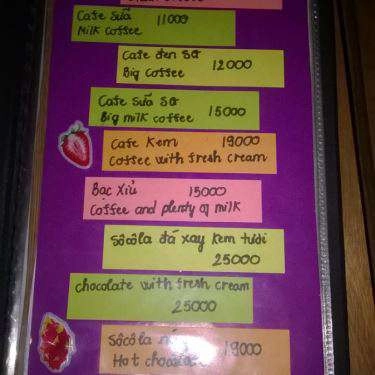 Cafe Sữa 11000
Milk Coffee
Cafe đen SG
Big Coffee 12000
Cafe Sữa SG
Big milk coffee 15000
Cafe Kem 19000
Coffee with fresh cream
Bạc Xỉu 15000
Coffee and plenty of milk
Sôcôla đá xay Kem tươi
25000
chocolate with fresh cream
25000
Sôcôla
Hot chocolate 19000